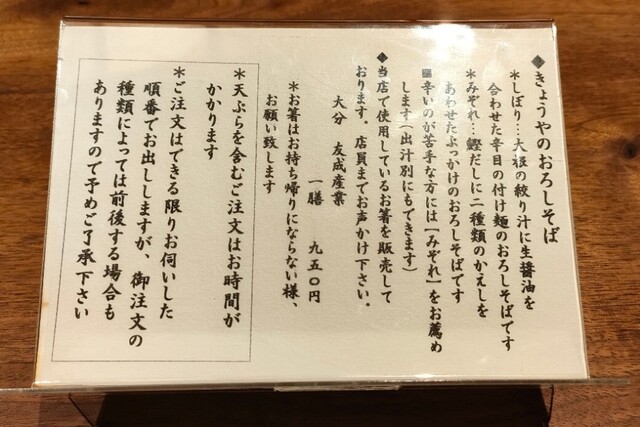 ◆きょうやのおろしそば
＊しぼり…大根の絞り汁に生醤油を
合わせた辛目の付け麺のおろしそばです
＊みぞれ…鰹だしに二種類のかえしを
あわせたぶっかけのおろしそばです
辛いのが苦手な方には【みぞれ】をお薦め
します(出汁別にもできます)
◆当店で使用しているお箸を販売して
おります。店員までお声かけ下さい。
大分 友成産業
一膳 九五〇円
＊お箸はお持ち帰りにならない様、
お願い致します
＊天ぷらを含むご注文はお時間が
かかります
＊ご注文はできる限りお伺いした
順番でお出ししますが、御注文の
種類によっては前後する場合も
ありますので予めご了承下さい